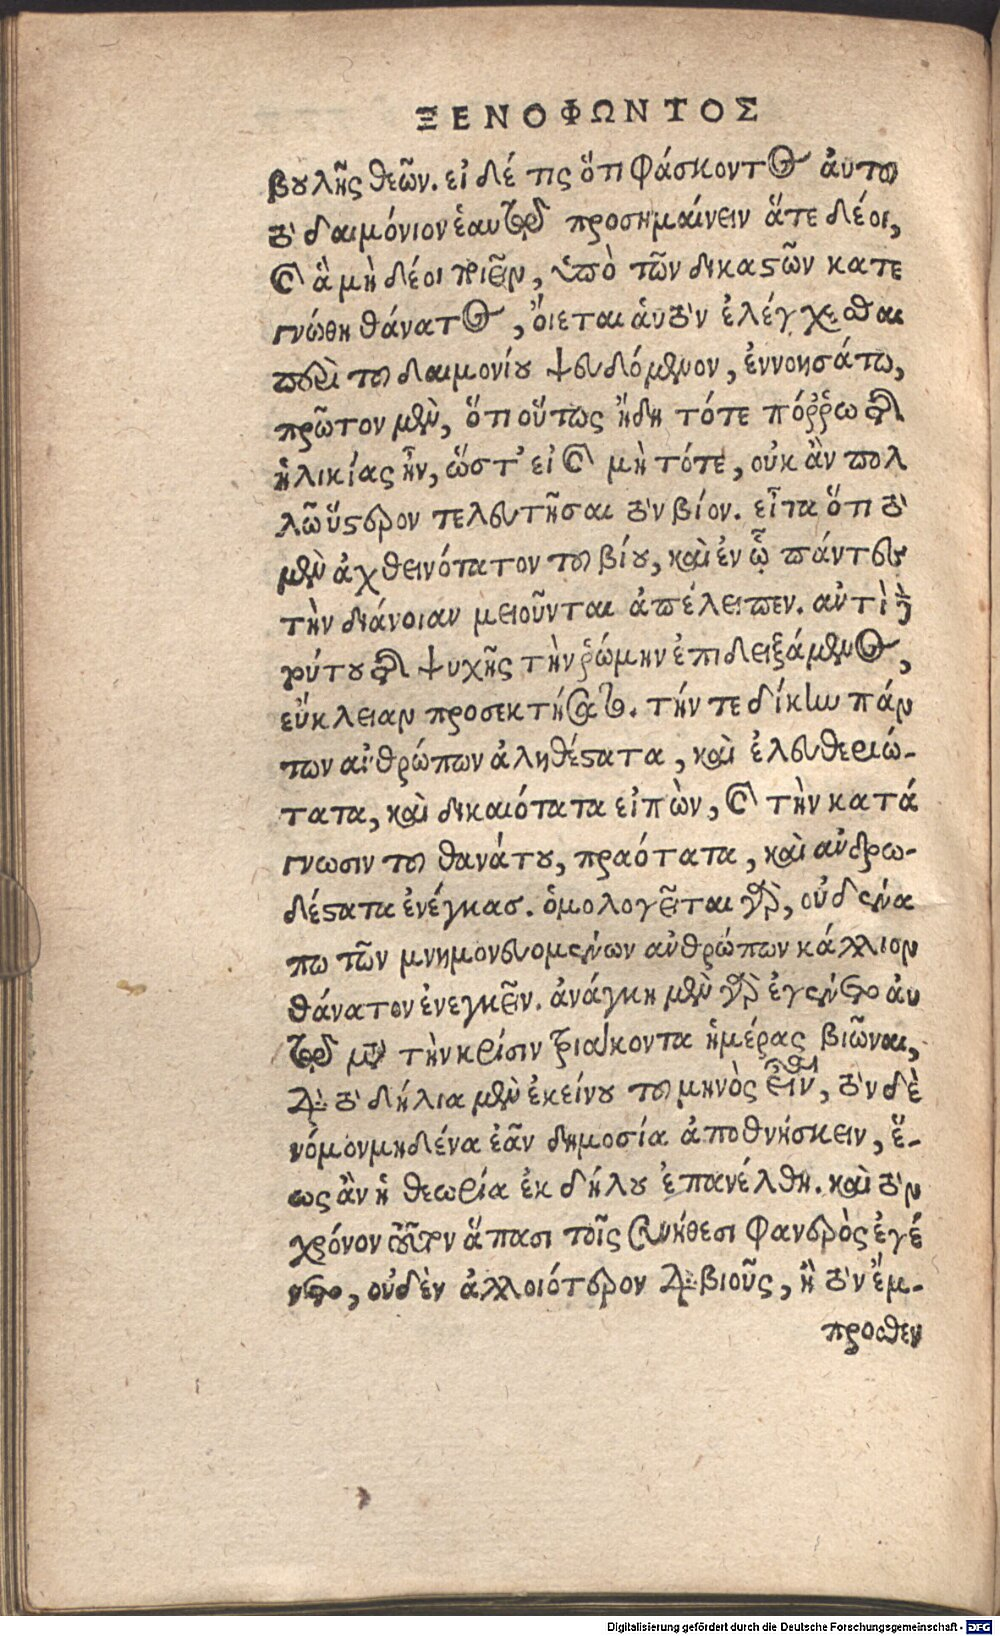 ΞΕΝΟΦΩΝΤΟΣ
βουλῆς θεῶν. εἰ δέ τις ὅτι φάσκοντος αὐτοῦ
τὸ δαιμόνιον ἑαυτῷ προσημαίνειν ἅτε δέοι,
καὶ ἃ μὴ δέοι ποιεῖν, ὑπὸ τῶν δικαστῶν κατε
γνώθη θάνατος, οἴεται αὐτὸν ἐλέγχεσθαι
περὶ τοῦ δαιμονίου ψευδόμενον, ἐννοησάτω,
πρῶτον μὲν, ὅτι οὕτως ἤδη τότε πόῤῥω τῆς
ἡλικίας ἦν, ὥστ' εἰ καὶ μὴ τότε, οὐκ ἂν πολ
λῷ ὕστερον τελευτῆσαι τὸν βίον. εἶτα ὅτι τὸ
μὲν ἀχθεινότατον τοῦ βίου, καὶ ἐν ᾧ πάντες
τὴν διάνοιαν μειοῦνται ἀπέλειπεν. ἀντὶ δὲ
τούτου τῆς ψυχῆς τὴν ῥώμην ἐπιδειξάμενος,
εὔκλειαν προσεκτήσατο. τήν τε δίκην πάν
των ἀνθρώπων ἀληθέστατα, καὶ ἐλευθεριώ-
τατα, καὶ δικαιότατα εἰπὼν, καὶ τὴν κατά
γνωσιν τοῦ θανάτου, πραότατα, καὶ ἀνδρω-
δέστατα ἐνέγκας. ὁμολογεῖται γὰρ, οὐδένα
πω τῶν μνημονευομένων ἀνθρώπων κάλλιον
θάνατον ἐνεγκεῖν. ἀνάγκη μὲν γὰρ ἐγένετο αὐ
τῷ μετὰ τὴν κρίσιν τριάκοντα ἡμέρας βιῶναι,
διὰ τὸ δήλια μὲν ἐκείνου τοῦ μηνὸς εἶναι, τὸν δὲ
νόμον μηδένα ἐᾶν δημοσίᾳ ἀποθνήσκειν, ἕ-
ως ἂν ἡ θεωρία ἐκ δήλου ἐπανέλθῃ. καὶ τὸν
χρόνον τοῦτον ἅπασι τοῖς συνήθεσι φανερὸς ἐγέ
νετο, οὐδὲν ἀλλοιότερον διαβιοῦς, ἢ τὸν ἔμ-
προσθεν
Digitalisierung gefördert durch die Deutsche Forschungsgemeinschaft - DFG